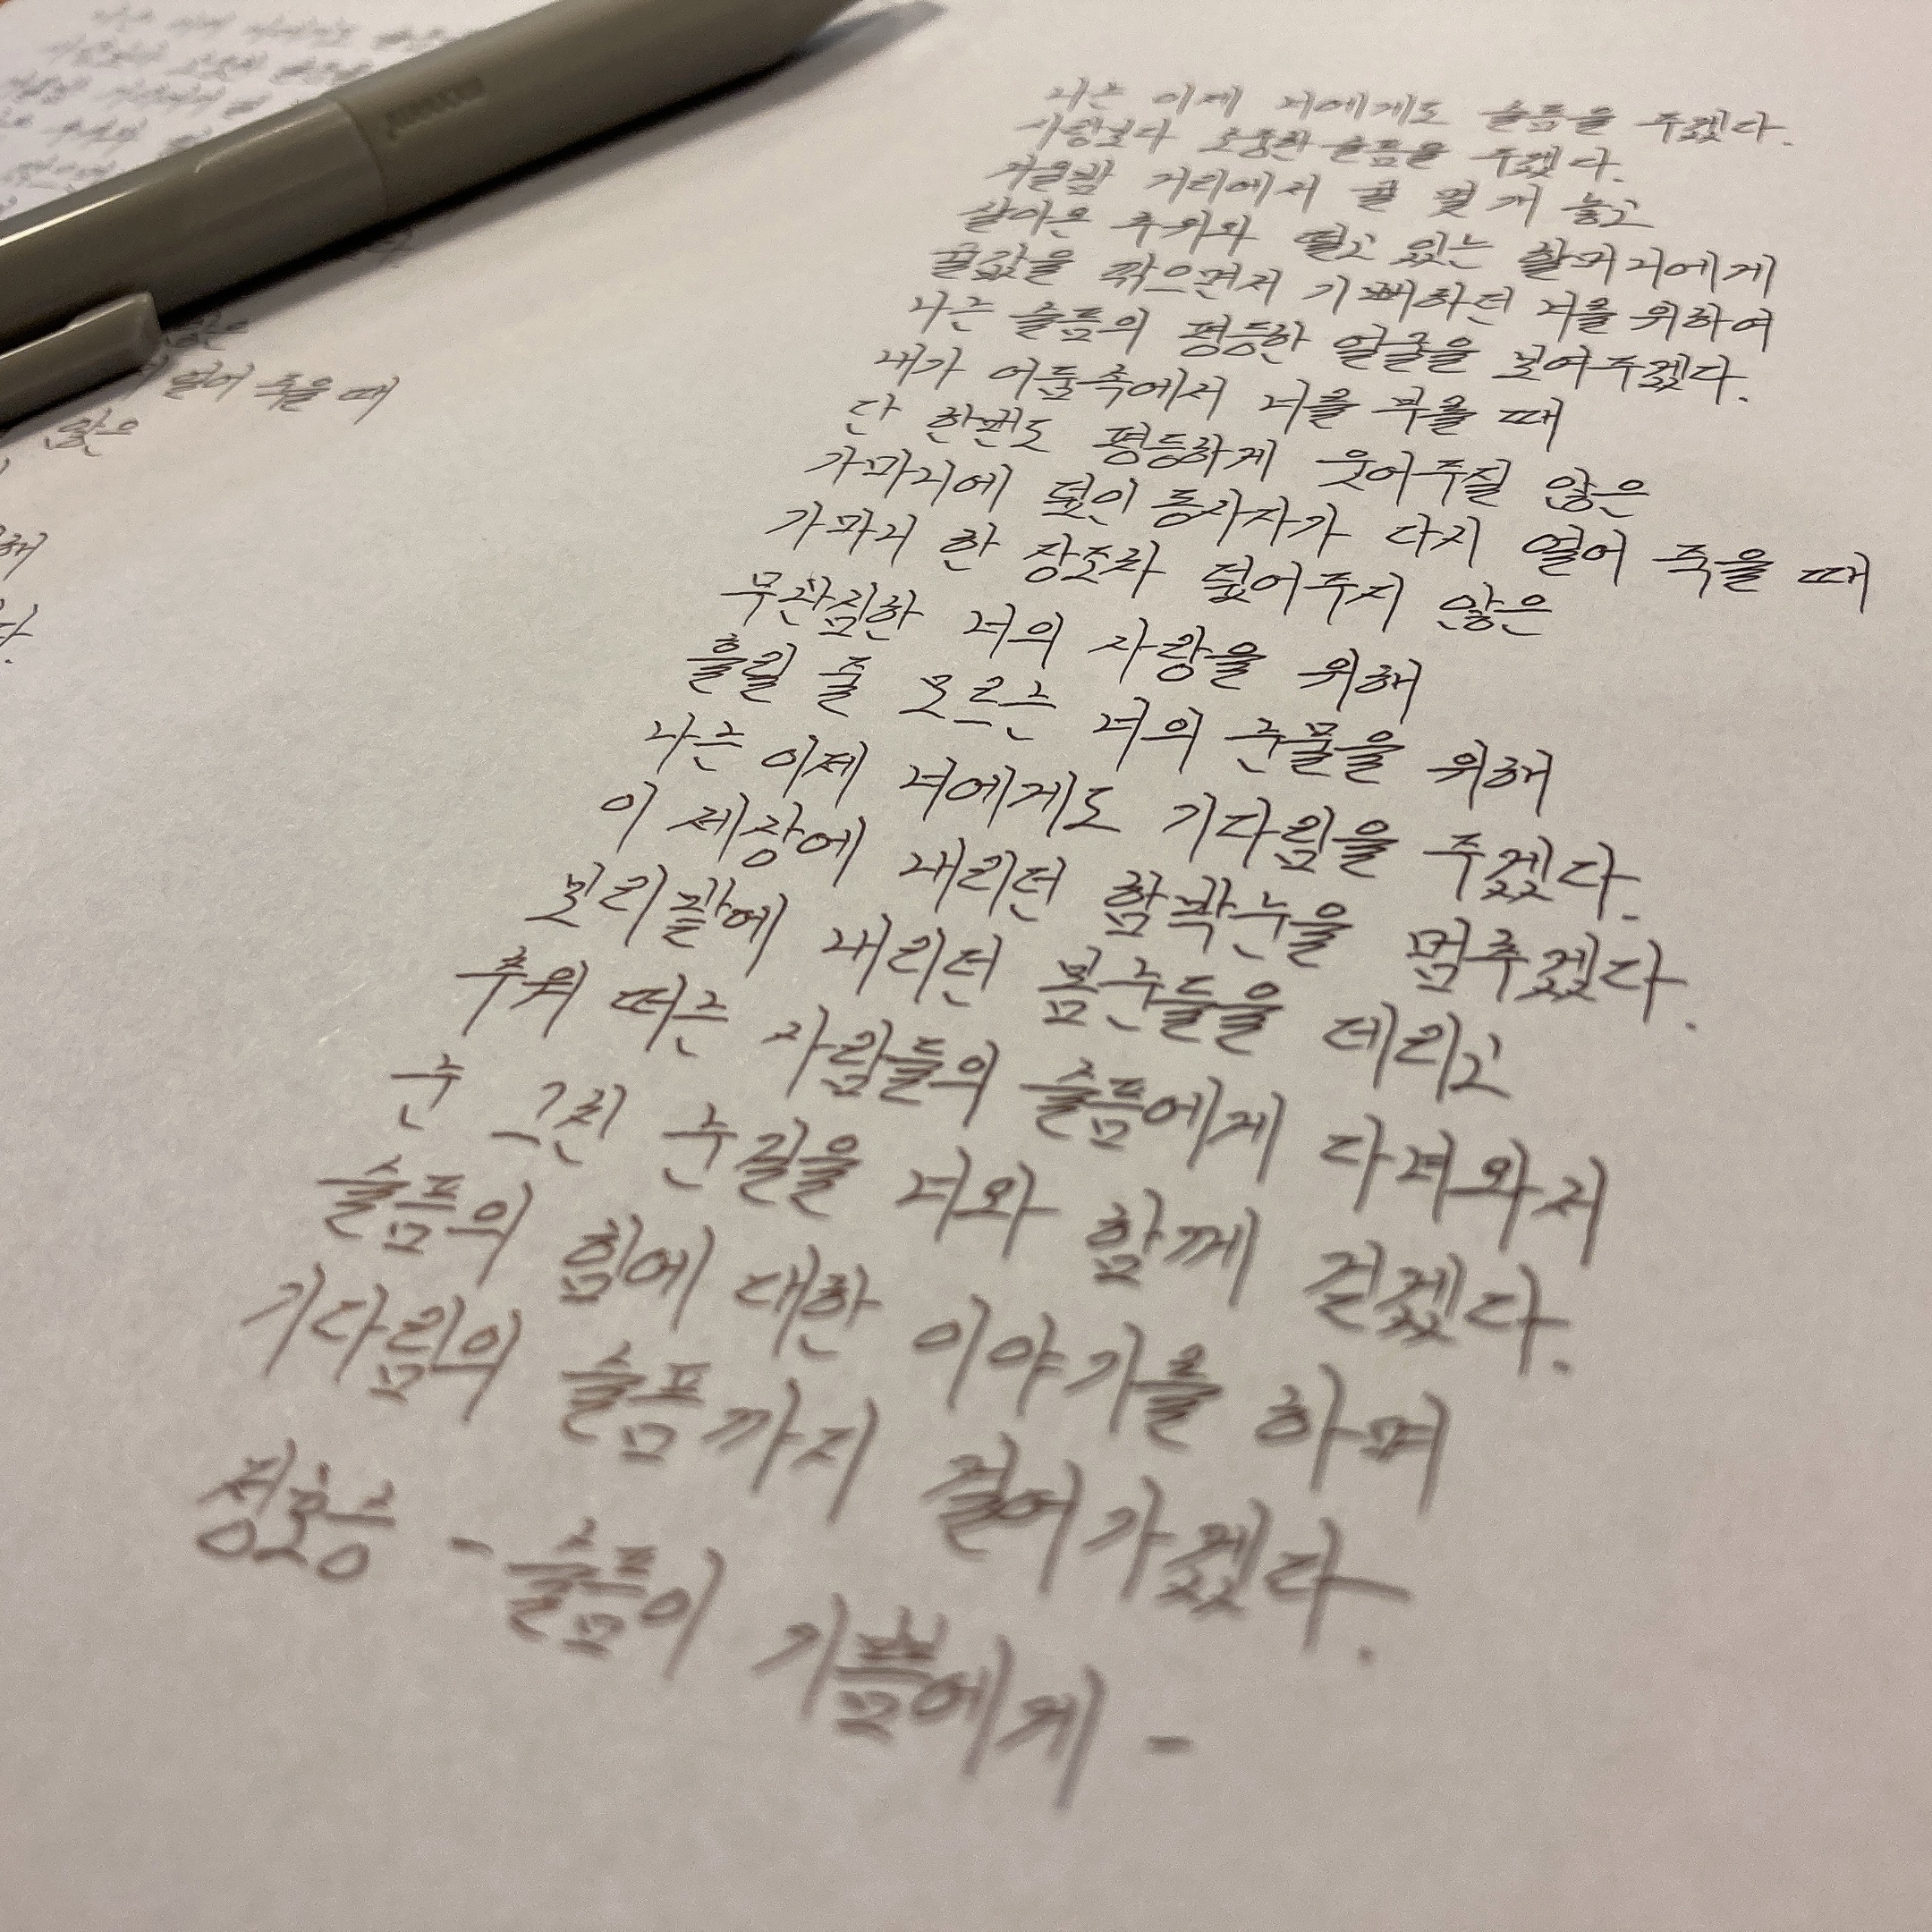 나는 이제 너에게도 슬픔을 주겠다.
사랑보다 소중한 슬픔을 주겠다.
겨울밤 거리에서 귤 몇 개 놓고
살아온 추위와 떨고 있는 할머니에게
귤값을 깎으면서 기뻐하던 너를 위하여
나는 슬픔의 평등한 얼굴을 보여주겠다.
내가 어둠속에서 너를 부를 때
단 한번도 평등하게 웃어주질 않은
가마니에 덮인 동사자가 다시 얼어 죽을 때
가마니 한 장조차 덮어주지 않은
무관심한 너의 사랑을 위해
흘릴 줄 모르는 너의 눈물을 위해
나는 이제 너에게도 기다림을 주겠다.
이 세상에 내리던 함박눈을 멈추겠다.
보리밭에 내리던 봄눈들을 데리고
추위 떠는 사람들의 슬픔에게 다녀와서
눈 그친 눈길을 너와 함께 걷겠다.
슬픔의 힘에 대한 이야기를 하며
기다림의 슬픔까지 걸어가겠다.
정호승 - 슬픔이 기쁨에게 -
얼어 죽을 때
않은